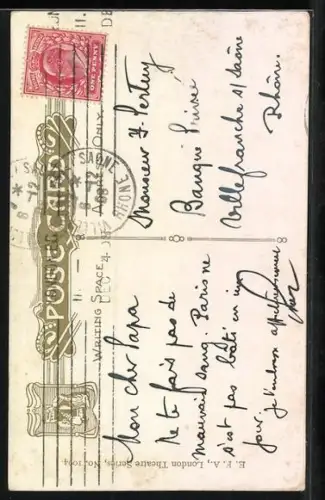 POST CARD
WRITING SPACE
ONE PENNY
Mon cher Papa
Ne te fais pas de
mauvais sang. Paris ne
s'est pas bâti en un
jour. je t'embrasse affectueusement
Monsieur F.
Banque Privée
Villefranche s/ Saône
Rhône.
SAONE
RHONE
8 -12
08
DEC 4
E. F. A., London Theatre Series, No. 1004